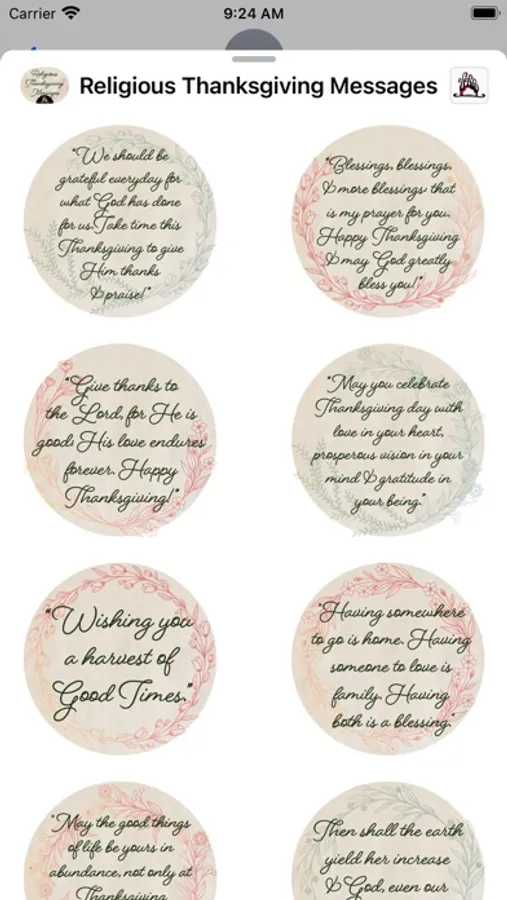 Carrier 9:24 AM
Religious Thanksgiving Messages
Religious
Thanksgiving
"We should be
grateful everyday for
what God has done
for us. Take time this
Thanksgiving to give
Him thanks
& praise!"
"Blessings, blessings,
& more blessings that
is my prayer for you.
Happy Thanksgiving
& may God greatly
bless you!"
"Give thanks to
the Lord, for He is
good; His love endures
forever. Happy
Thanksgiving!"
"May you celebrate
Thanksgiving day with
love in your heart,
prosperous vision in your
mind & gratitude in
your being."
"Wishing you
a harvest of
Good Times."
"Having somewhere
to go is home. Having
someone to love is
family. Having
both is a blessing."
"May the good things
of life be yours in
abundance, not only at
Thanksgiving
Then shall the earth
yield her increase
& God, even our